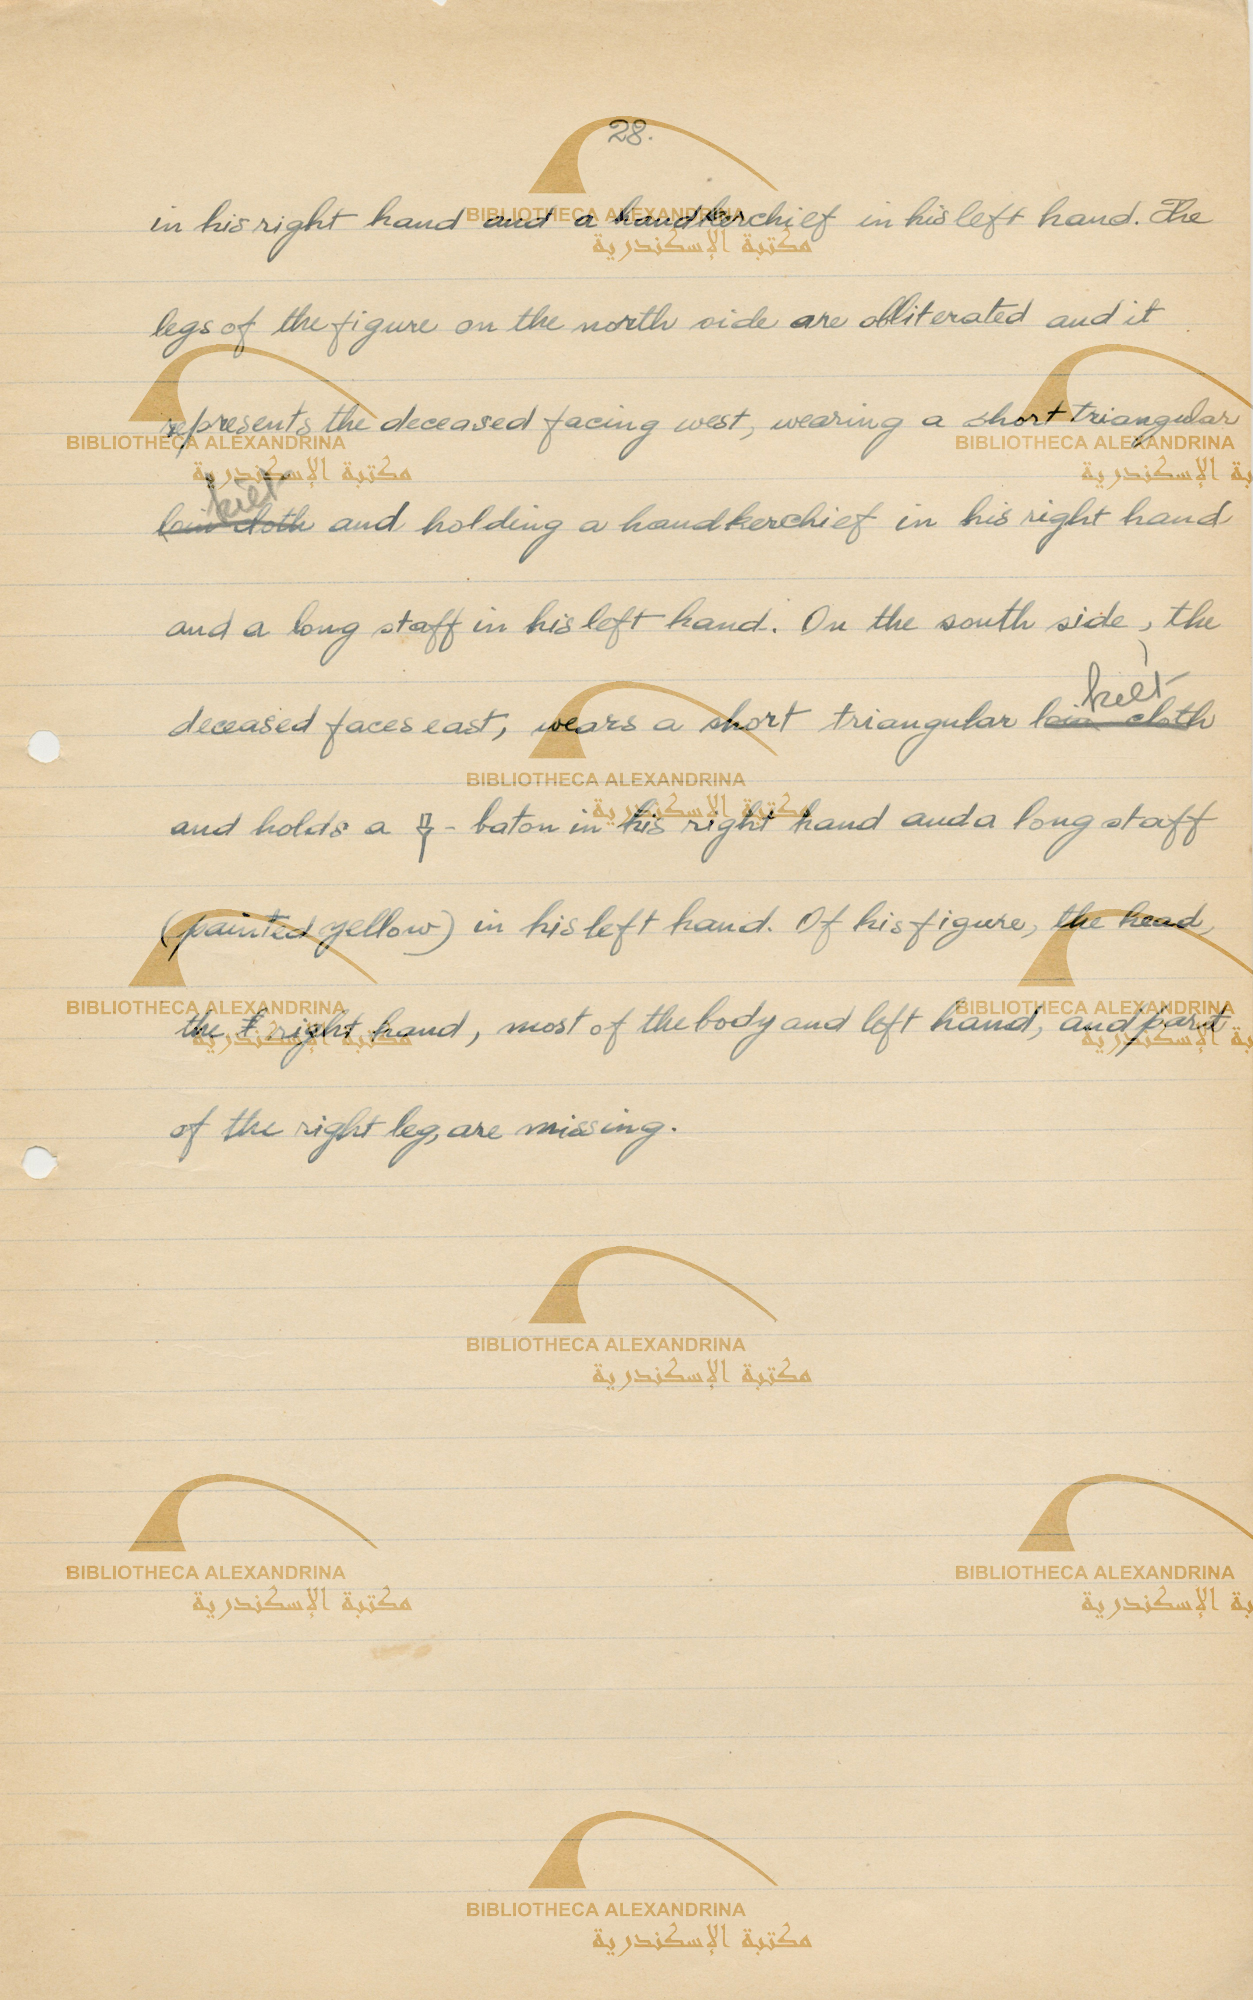 28.
in his right hand and a handkerchief in his left hand. The
legs of the figure on the north side are obliterated and it
represents the deceased facing west, wearing a short triangular
kilt
loin cloth and holding a handkerchief in his right hand
and a long staff in his left hand. On the south side, the
kilt
deceased faces east, wears a short triangular loin cloth
and holds a 𓌂 - baton in his right hand and a long staff
(painted yellow) in his left hand. Of his figure, the head,
the right hand, most of the body and left hand, and part
of the right leg, are missing.
BIBLIOTHECA ALEXANDRINA
مكتبة الإسكندرية
BIBLIOTHECA ALEXANDRINA
مكتبة الإسكندرية
BIBLIOTHECA ALEXANDRINA
BIBLIOTHECA ALEXANDRINA
مكتبة الإسكندرية
BIBLIOTHECA ALEXANDRINA
مكتبة الإسكندرية
BIBLIOTHECA ALEXANDRINA
BIBLIOTHECA ALEXANDRINA
مكتبة الإسكندرية
BIBLIOTHECA ALEXANDRINA
مكتبة الإسكندرية
BIBLIOTHECA ALEXANDRINA
BIBLIOTHECA ALEXANDRINA
مكتبة الإسكندرية